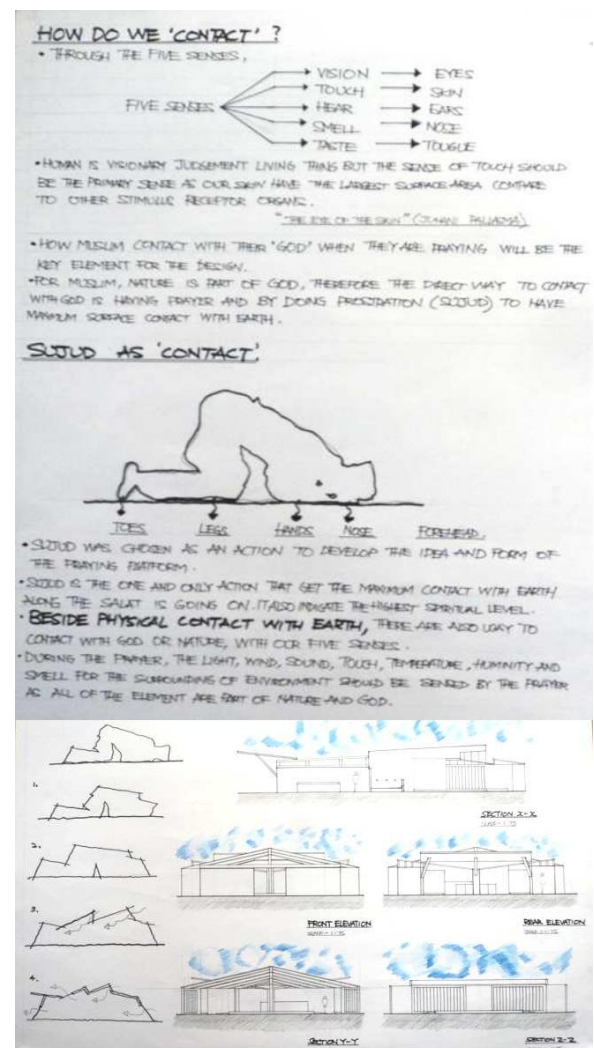 HOW DO WE 'CONTACT' ?
• THROUGH THE FIVE SENSES,
FIVE SENSES
VISION EYES
TOUCH SKIN
HEAR EARS
SMELL NOSE
TASTE TOUGUE
• HUMAN IS VISIONARY JUDGEMENT LIVING THING BUT THE SENSE OF TOUCH SHOULD
BE THE PRIMARY SENSE AS OUR SKIN HAVE THE LARGEST SURFACE AREA COMPARE
TO OTHER STIMULUS RECEPTOR ORGANS.
"THE EYE OF THE SKIN" (JUHANI PALLASMA)
• HOW MUSLIM CONTACT WITH THEIR 'GOD' WHEN THEY ARE PRAYING WILL BE THE
KEY ELEMENT FOR THE DESIGN.
• FOR MUSLIM, NATURE IS PART OF GOD, THEREFORE THE DIRECT WAY TO CONTACT
WITH GOD IS HAVING PRAYER AND BY DOING PROSTRATION (SUJUD) TO HAVE
MAXIMUM SURFACE CONTACT WITH EARTH.
SUJUD AS 'CONTACT'.
TOES LEGS HANDS NOSE FOREHEAD.
• SUJUD WAS CHOSEN AS AN ACTION TO DEVELOP THE IDEA AND FORM OF
THE PRAYING PLATFORM.
• SUJUD IS THE ONE AND ONLY ACTION THAT GET THE MAXIMUM CONTACT WITH EARTH
ALONG THE SALAT IS GOING ON. IT ALSO INDICATE THE HIGHEST SPIRITUAL LEVEL.
• BESIDE PHYSICAL CONTACT WITH EARTH, THERE ARE ALSO WAY TO
CONTACT WITH GOD OR NATURE, WITH OUR FIVE SENSES.
• DURING THE PRAYER, THE LIGHT, WIND, SOUND, TOUCH, TEMPERATURE, HUMINITY AND
SMELL FOR THE SURROUNDING OF ENVIRONMENT SHOULD BE SENSED BY THE PRAYER
AS ALL OF THE ELEMENT ARE PART OF NATURE AND GOD.
1.
SECTION X-X
2.
3.
FRONT ELEVATION
REAR ELEVATION
4.
SECTION Y-Y
SECTION Z-Z